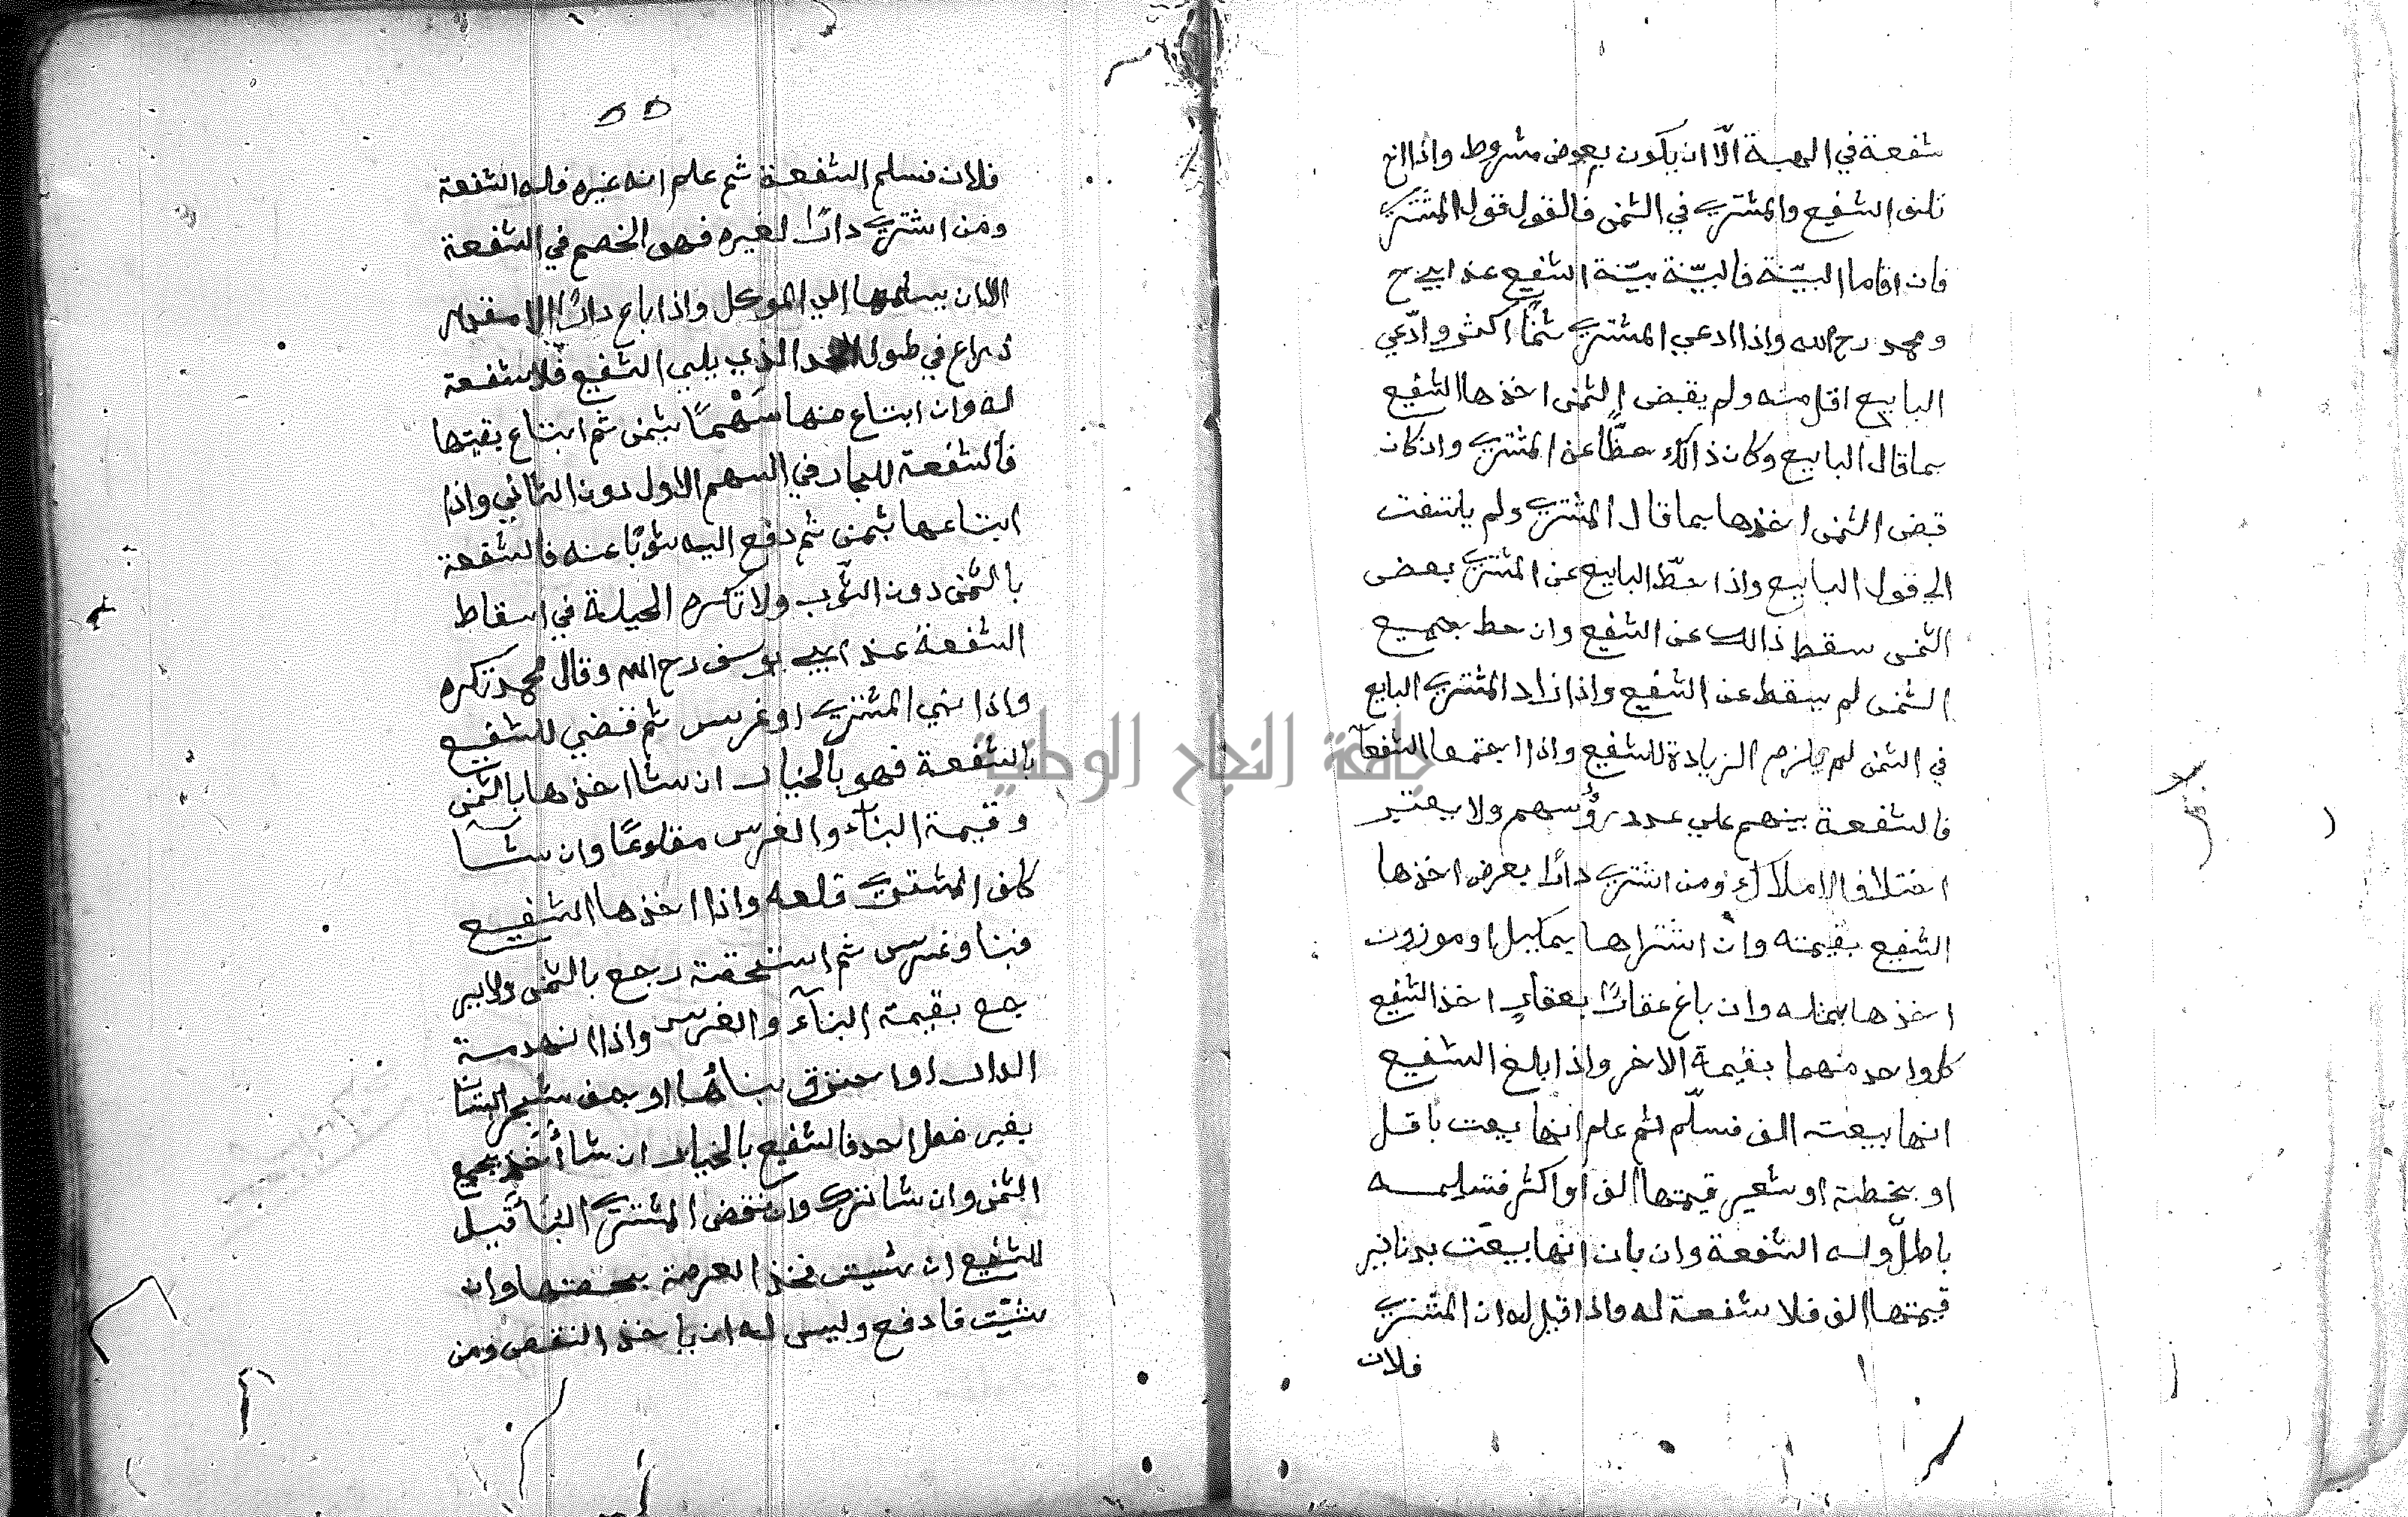 شفعة في الهبة الّا ان يكون بعوض مشروط واذا اخ
تلف الشفيع والمشتري في الثمن فالقول قول المشتري
فان اقاما البيّنة فالبيّنة بيّنة الشفيع عند ابي ح
ومحمد رح الله واذا ادعي المشتري ثمنًا اكثر وادّعي
البايع اقل منه ولم يقبض الثمن اخذها الشفيع
بما قال البايع وكان ذالك حطًّا عن المشتري وان كان
قبض الثمن اخذها بما قال المشتري ولم يلتفت
الي قول البايع واذا حطّ البايع عن المشتري بعض
الثمن سقط ذالك عن الشفيع وان حط جميع
الثمن لم يسقط عن الشفيع واذا زاد المشتري البايع
في الثمن لم يلزم الزيادة للشفيع واذا اجتمعا الشفعآ
فالشفعة بينهم علي عدد رؤسهم ولا يعتبر
اختلاف الاملاك ومن اشتري دارًا بعرض اخذها
الشفيع بقيمته وان اشتراها بمكيل او موزون
اخذها بمثله وان باع عقارًا بعقارٍ اخذ الشفيع
كل واحد منهما بقيمة الاخر واذا بلغ الشفيع
انها بيعت الف فسلّم ثم علم انها بيعت باقل
او بخطة او شعير قيمتها الف او اكثر فتسليمه
باطلٌ وله الشفعة وان بان انها بيعت بدنانير
قيمتها الف فلا شفعة له واذا قيل له ان المشتري
فلان
٥٥
فلان فسلم الشفعة ثم علم انه غيره فله الشفعة
ومن اشتري دارًا لغيره فهو الخصم في الشفعة
الا ان يسلمها الي الموكل واذا باع دارًا الا مقدار
ذراع في طول الحد الذي يلي الشفيع فلا شفعة
له وان ابتاع منها سَهْمًا بثمن ثم ابتاع بقيتها
فالشفعة للجار في السهم الاول دون الثاني واذا
ابتاعها بثمن ثم دفع اليه ثوبًا عنه فالشفعة
بالثمن دون الثّوب ولا تكره الحيلة في اسقاط
الشفعة عند ابي يوسف رح الله وقال محمد تكره
واذا بني المشتري او غرس ثم قضي للشفيع
بالشفعة فهو بالخيار ان شا اخذها بالثمن
وقيمة البنآء والغرس مقلوعًا وان شآ
كلف المشتري قلعه واذا اخذها الشفيع
فبنا وغرس ثم استحقة رجع بالثمن ولا ير
جع بقيمة البنآء والغرس واذا انهدمة
الدار او احترق بناؤها او جف شجر البستان
بغير فعل احد فالشفيع بالخيار ان شا أخذ بجميع
الثمن وان شا ترك وان نقض المشتري البنا قيل
للشفيع ان شيت فخذ العرصة بحصتها وان
شيّت فادفع وليس له ان ياخذ النقض ومن
جامعة النجاح الوطنية